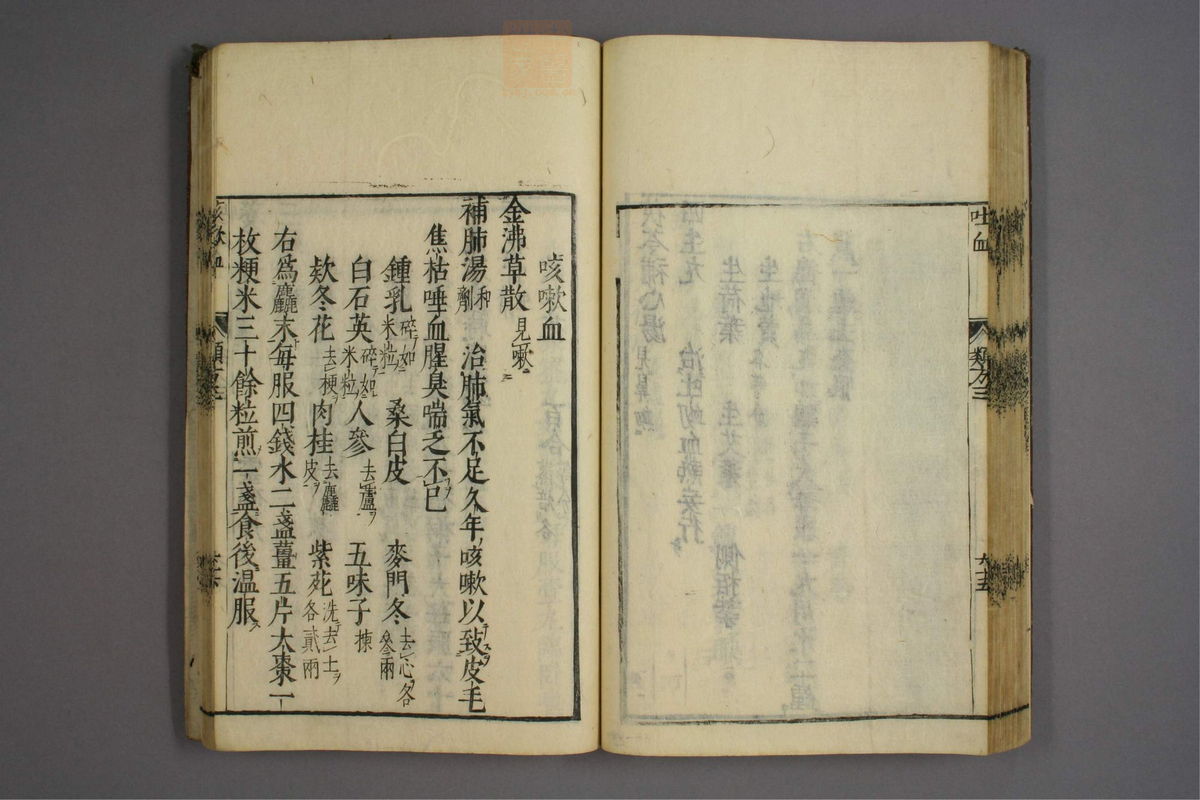 吐血
類方三
九十五
咳嗽血
金沸草散 見嗽ニ
補肺湯 和劑 治肺氣不足久年咳嗽以致皮毛
焦枯唾血腥臭喘乏不已
鍾乳 碎如米粒 桑白皮 麥門冬 去心各叄兩
白石英 碎如米粒 人參 去蘆 五味子 揀
欵冬花 去梗 肉桂 去麤皮 紫菀 洗去土各貳兩
右爲麤末每服四錢水二盞薑五片大棗一
枚粳米三十餘粒煎一盞食後温服
咳嗽血